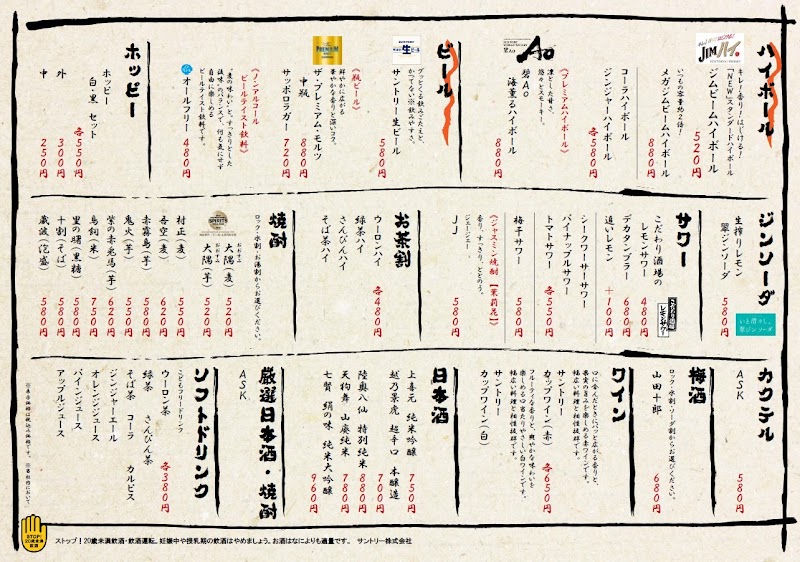 ハイボール
JIMハイ。
キレ!香り!はじける!
「NEW」スタンダードハイボール
ジムビームハイボール
520円
いつもの容量約2倍!
メガジムビームハイボール
880円
コーラハイボール
ジンジャーハイボール
各580円
《プレミアムハイボール》
凛とした甘さ。
悠々とスモーキー。
碧Ao
海薫るハイボール
880円
ビール
生ビール
グッとくる飲みごたえと、
かつてない※飲みやすさ。
サントリー生ビール
580円
《瓶ビール》
鮮やかに広がる
華やかな香りと深いコク。
ザ・プレミアム・モルツ
中瓶
880円
サッポロラガー
720円
《ノンアルコール
ビールテイスト飲料》
「麦の味わい」と、すっきりとした
後味」のバランスで、何も気にせず
自由に楽しめる
ビールテイスト飲料です。
オールフリー
480円
ホッピー
ホッピー
白・黒 セット
各550円
外
300円
中
250円
ジンソーダ
生搾りレモン
翠ジンソーダ
580円
いと清々し。
翠ジンソーダ
サワー
こだわり酒場の
レモンサワー
480円
こだわり酒場の
レモンサワー
デカタンブラー
680円
追いレモン
+100円
シークワーサーサワー
パイナップルサワー
トマトサワー
各550円
梅干サワー
580円
《ジャスミン焼酎【茉莉花】》
香り、すっきり、ととのう。
ジェージェー
JJ
580円
お茶割
ウーロンハイ
緑茶ハイ
さんぴんハイ
そば茶ハイ
各480円
焼酎
ロック・水割・お湯割からお選びください。
おおすみ
大隅(麦)
520円
おおすみ
大隅(芋)
520円
村正(麦)
550円
吾空(麦)
620円
赤霧島(芋)
580円
鬼火(芋)
550円
紫の赤兎馬(芋)
620円
鳥飼(米)
750円
里の曙(黒糖)
550円
十割(そば)
580円
蔵波(泡盛)
580円
カクテル
ASK
580円
梅酒
ロック・水割・ソーダ割からお選びください。
山田十郎
680円
ワイン
口に含んだときにパッと広がる香りと、
果実の旨みを楽しめる赤ワインです。
幅広い料理と相性抜群です。
サントリー
カップワイン(赤)
各650円
フルーティな香りと、爽やかな味わいを
楽しめる口当たりやさしい白ワインです。
幅広い料理と相性抜群です。
サントリー
カップワイン(白)
日本酒
上喜元 純米吟醸
750円
越乃景虎 超辛口 本醸造
700円
陸奥八仙 特別純米
880円
天狗舞 山廃純米
780円
七賢 絹の味 純米大吟醸
960円
厳選日本酒・焼酎
ASK
ソフトドリンク
こどもフリードリンク
ウーロン茶
各380円
緑茶 さんぴん茶
そば茶 コーラ カルピス
ジンジャーエール
オレンジジュース
パインジュース
アップルジュース
※表示価格は税込み価格です。
STOP!
20歳未満
飲酒
ストップ!20歳未満飲酒・飲酒運転。妊娠中や授乳期の飲酒はやめましょう。お酒はなによりも適量です。 サントリー株式会社